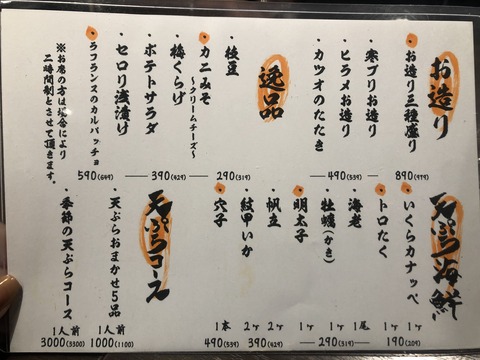 お造り
・お造り三種盛り 890(979)
・寒ブリお造り
・ヒラメお造り 490(539)
・カツオのたたき
逸品
・枝豆 290(319)
・カニみそ
～クリームチーズ～
・梅くらげ 390(429)
・ポテトサラダ
・セロリ浅漬け
・ラフランスのカルパッチョ 590(649)
※お席の方は場合により
二時間制とさせて頂きます。
天ぷら海鮮
・いくらカナッペ 1ヶ
・トロたく 1ヶ 190(209)
・海老 1尾
・牡蠣(かき) 1ヶ 290(319)
・明太子
・帆立 2ヶ
・紋甲いか 2ヶ 390(429)
・穴子 1本 490(539)
天ぷらコース
・天ぷらおまかせ5品 1人前 1000(1100)
・季節の天ぷらコース 1人前 3000(3300)